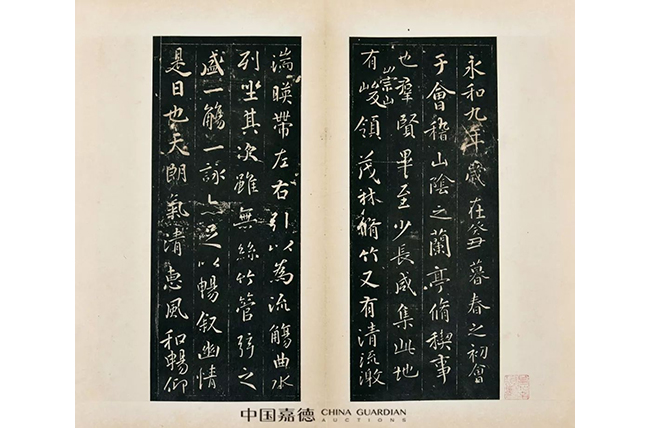 永和九年歲在癸丑暮春之初會
于會稽山陰之蘭亭脩稧事
也羣賢畢至少長咸集此地
有崇山峻領茂林脩竹又有清流激
湍暎帶左右引以為流觴曲水
列坐其次雖無絲竹管弦之
盛一觴一詠亦足以暢敘幽情
是日也天朗氣清惠風和暢仰
中国嘉德 CHINA GUARDIAN
AUCTIONS